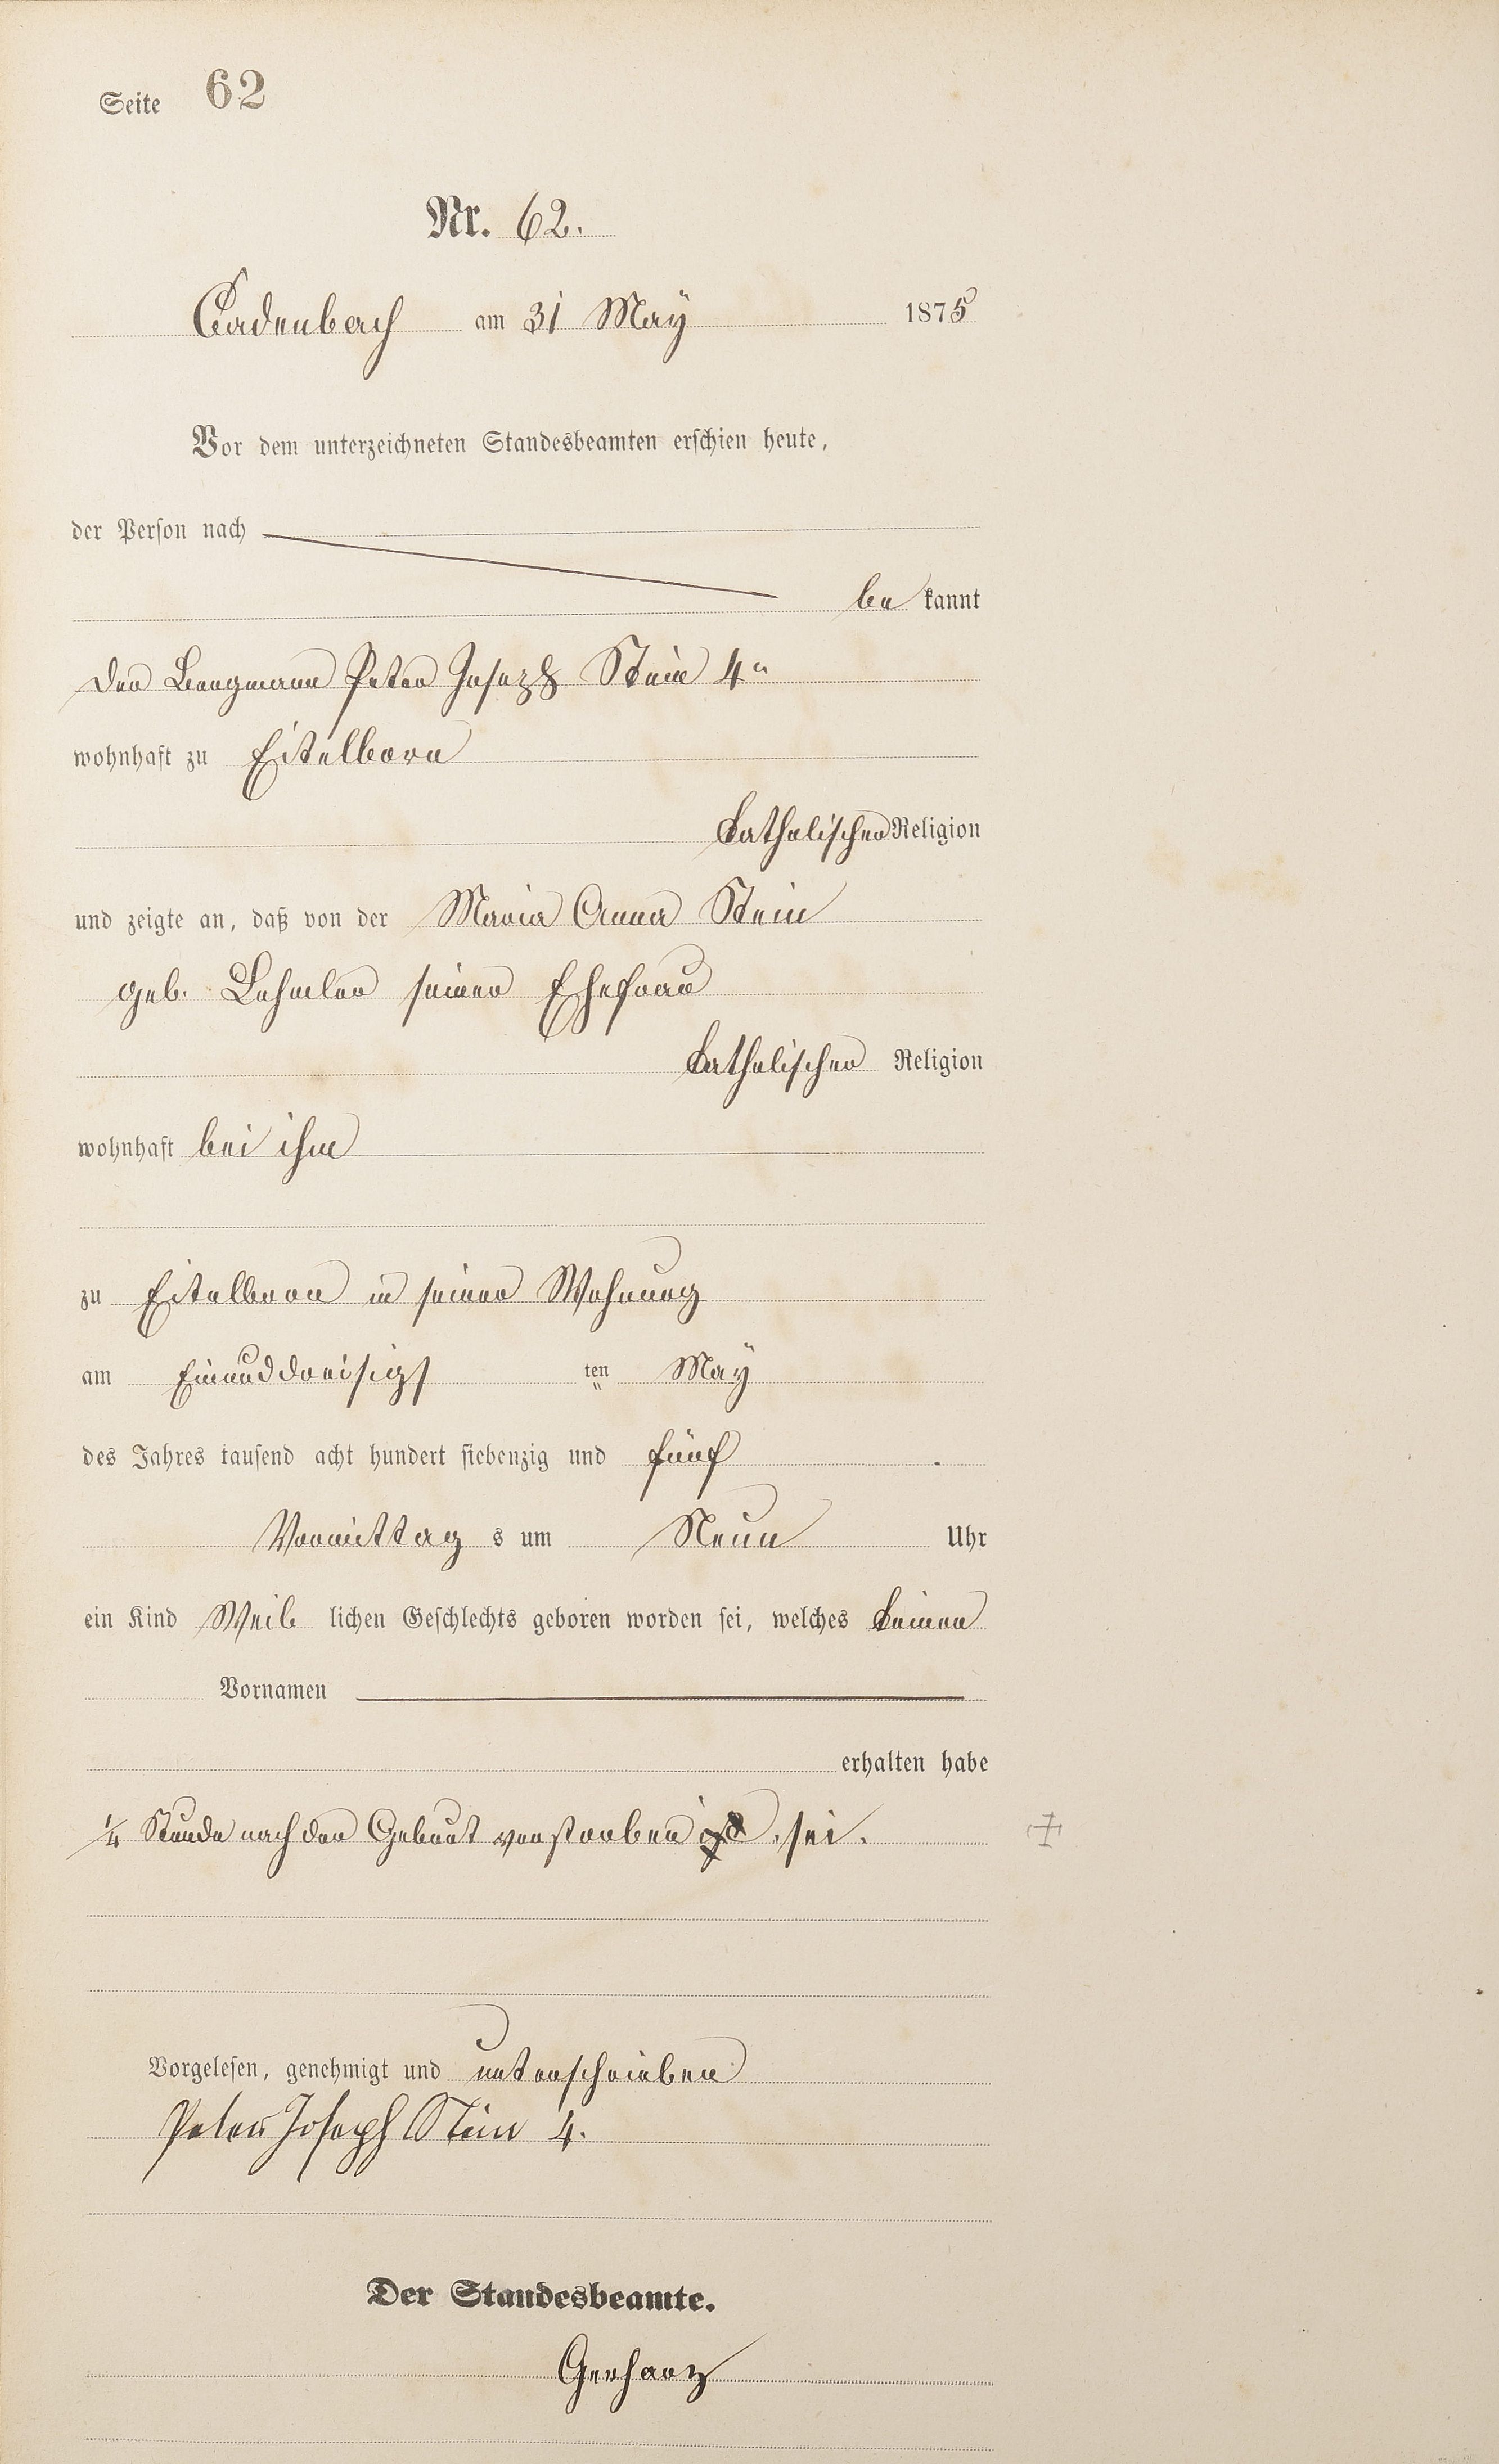 Seite 62
Nr. 62.
Cadenbach am 31 May 1875
Vor dem unterzeichneten Standesbeamten erschien heute,
der Person nach
be kannt
der Bergmann Peter Joseph Stein 4r
wohnhaft zu Eitelborn
katholischer Religion
und zeigte an, daß von der Maria Anna Stein
geb. Lehmler seiner Ehefrau
katholischer Religion
wohnhaft bei ihm
zu Eitelborn in seiner Wohnung
am Einunddreisigs ten May
des Jahres tausend acht hundert siebenzig und fünf
Vormittag s um Neun Uhr
ein Kind Weib lichen Geschlechts geboren worden sei, welches keinen
Vornamen
erhalten habe
1/4 Stunde nach der Geburt verstorben ist, sei.
Vorgelesen, genehmigt und unterschrieben
Peter Joseph Stein 4.
Der Standesbeamte.
Gerharz